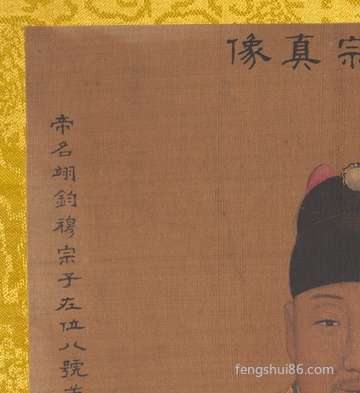 宗真像
帝名翊鈞穆宗子在位八號
fengshui86.com